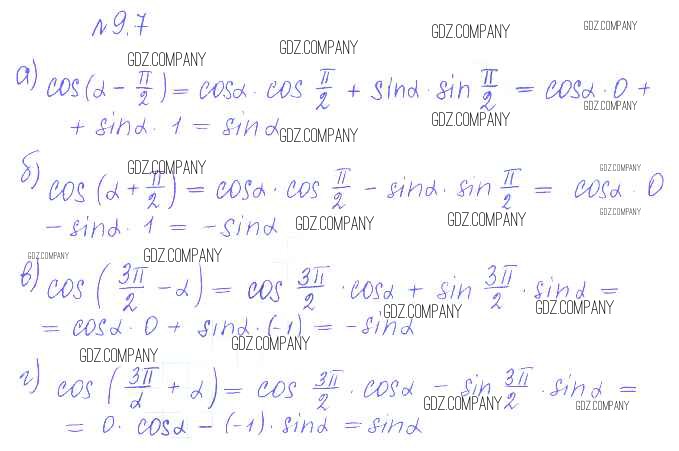 № 9.7
GDZ.COMPANY GDZ.COMPANY GDZ.COMPANY GDZ.COMPANY
а) cos(α − π/2) = cosα · cos π/2 + sinα · sin π/2 = cosα · 0 +
+ sinα · 1 = sinα
GDZ.COMPANY GDZ.COMPANY GDZ.COMPANY
GDZ.COMPANY GDZ.COMPANY
б) cos(α + π/2) = cosα · cos π/2 − sinα · sin π/2 = cosα · 0
− sinα · 1 = − sinα
GDZ.COMPANY GDZ.COMPANY GDZ.COMPANY
GDZ.COMPANY GDZ.COMPANY
в) cos(3π/2 − α) = cos 3π/2 · cosα + sin 3π/2 · sinα =
= cosα · 0 + sinα · (−1) = − sinα
GDZ.COMPANY GDZ.COMPANY GDZ.COMPANY
GDZ.COMPANY
г) cos(3π/α + α) = cos 3π/2 · cosα − sin 3π/2 · sinα =
= 0 · cosα − (−1) · sinα = sinα
GDZ.COMPANY GDZ.COMPANY